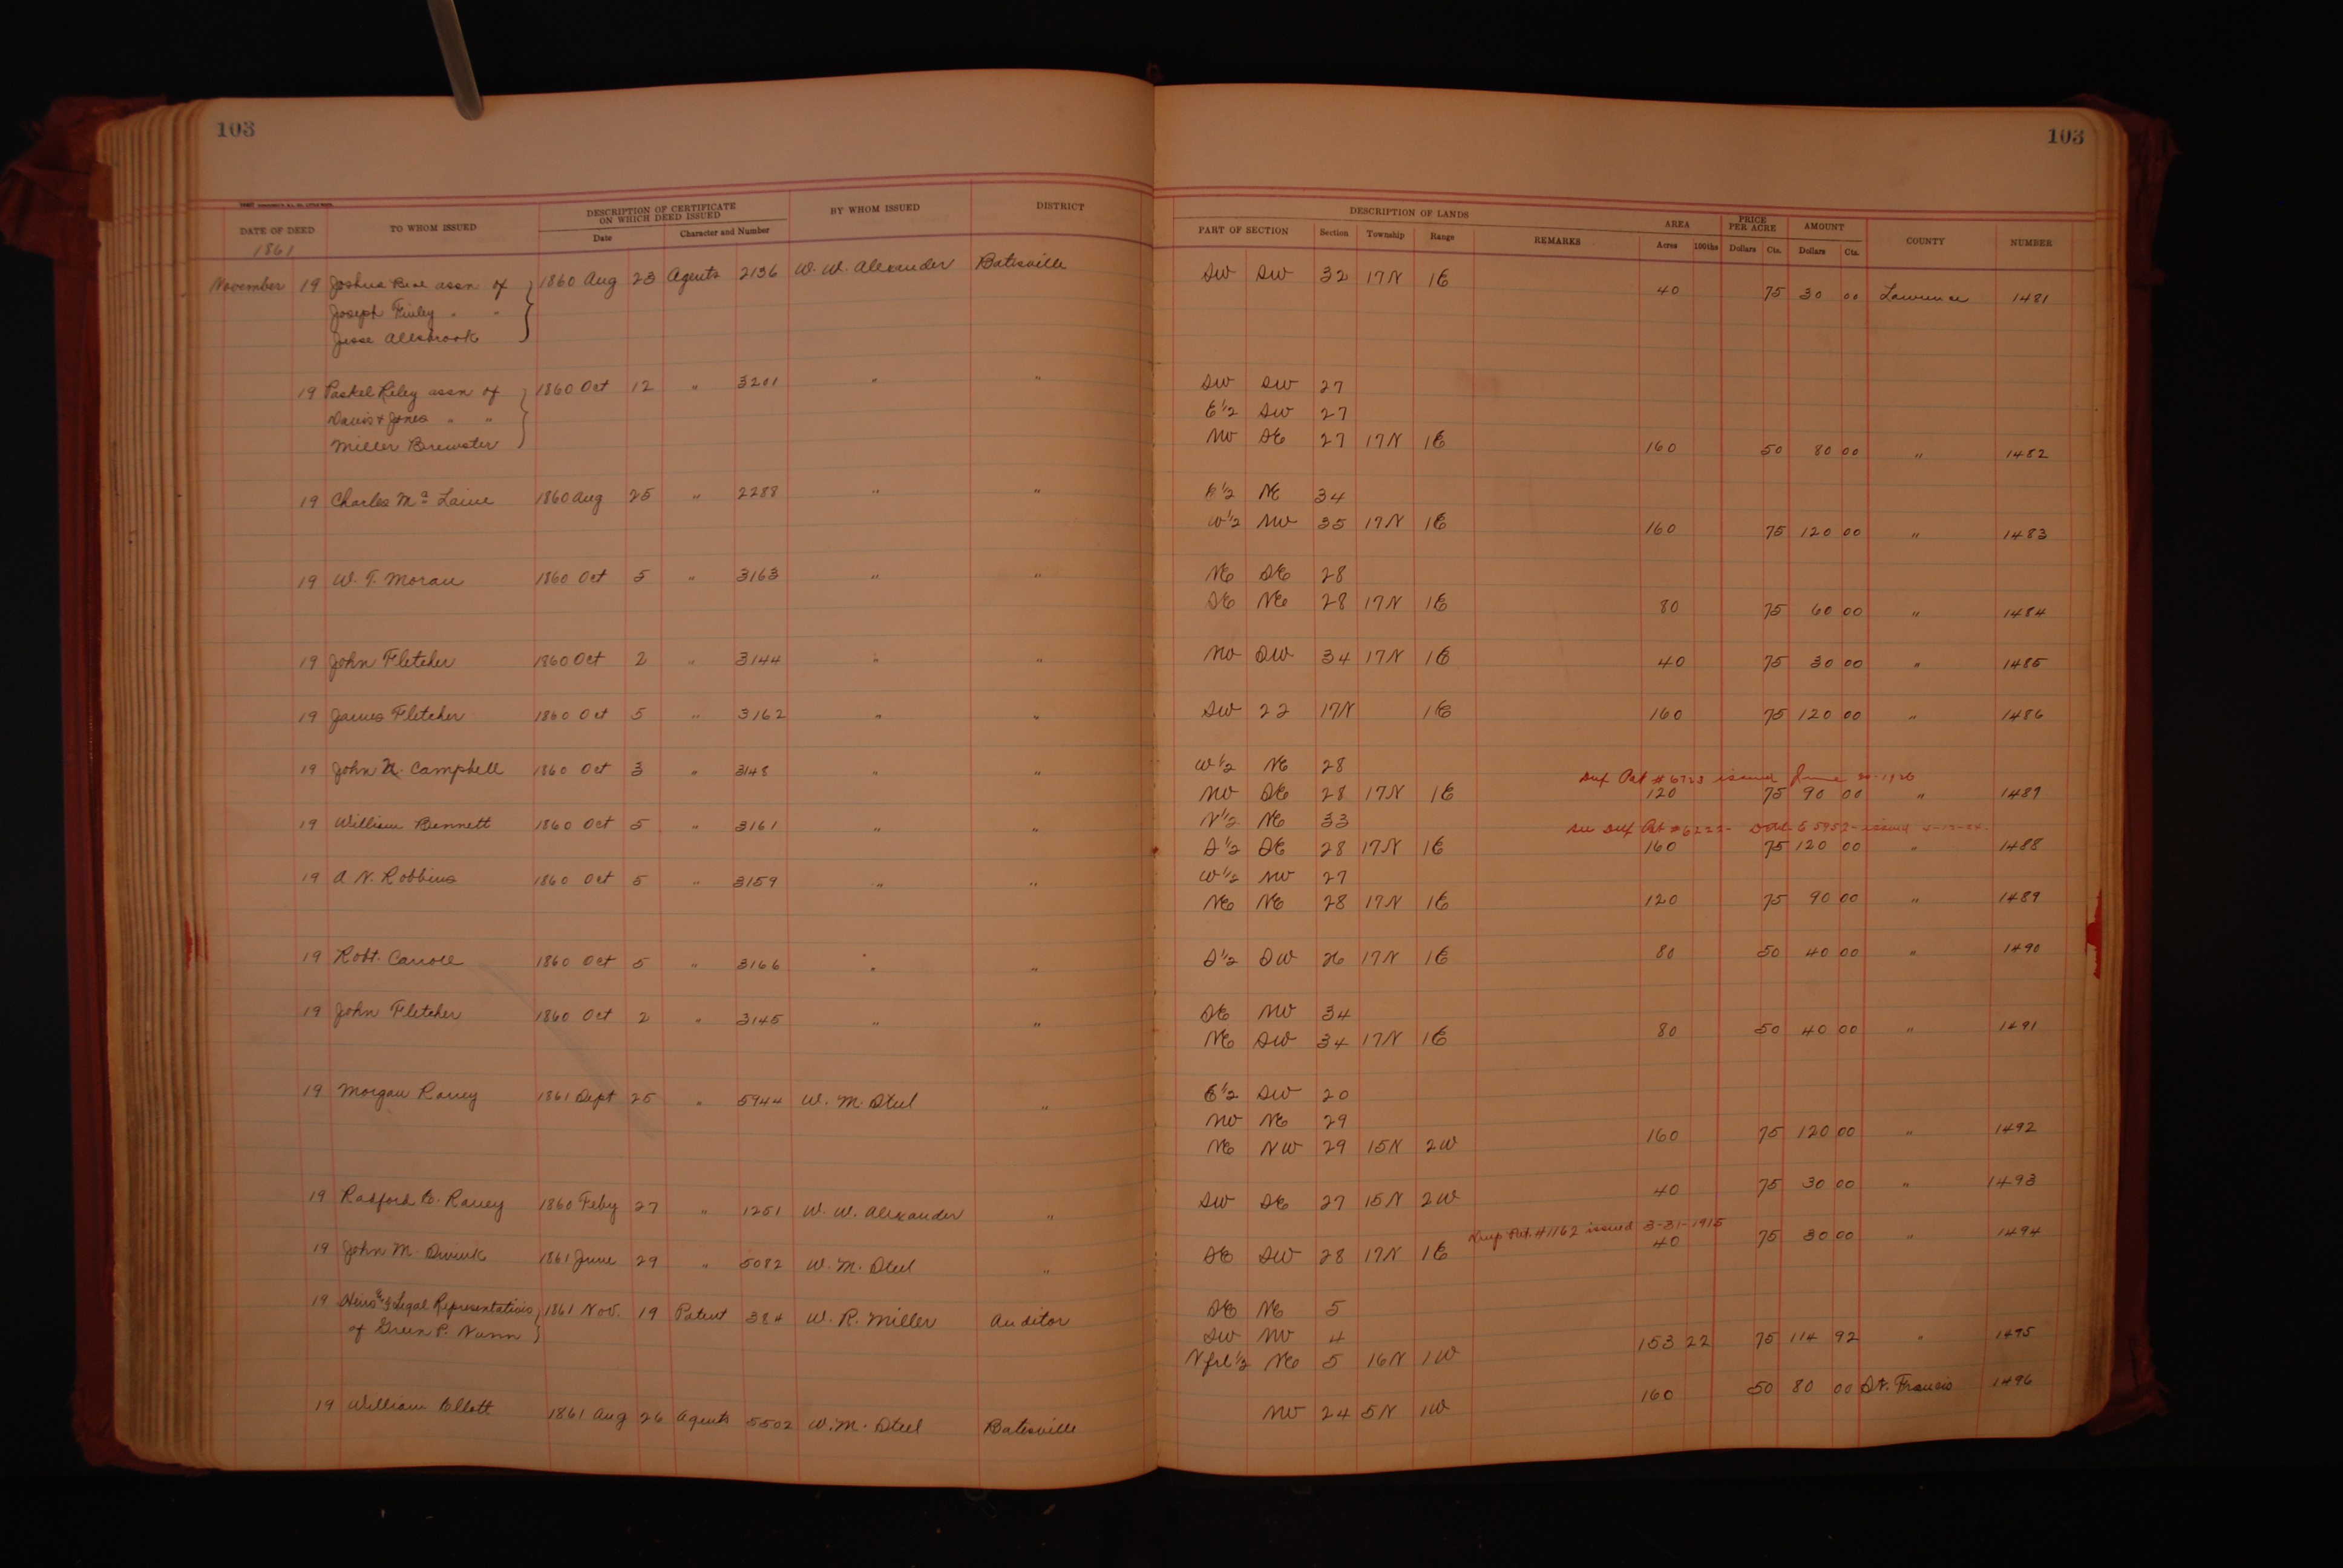 103
103
DATE OF DEED
TO WHOM ISSUED
DESCRIPTION OF CERTIFICATE
ON WHICH DEED ISSUED
Date
Character and Number
BY WHOM ISSUED
DISTRICT
DESCRIPTION OF LANDS
PART OF SECTION
Section
Township
Range
REMARKS
AREA
Acres
100ths
PRICE
PER ACRE
Dollars
Cts.
AMOUNT
Dollars
Cts.
COUNTY
NUMBER
1861
November 19 Joshua assn of 1860 Aug 23 Agents 2136 W. W. Alexander Batesville SW SW 32 17N 1E 40 75 30 00 Lawrence 1481
Joseph Finley " "
Jesse Allsbrook
19 Paskel Riley assn of 1860 Oct 12 " 3201 " " SW SW 27
Davis & Jones " " E½ SW 27
Miller Brewster NW SE 27 17N 1E 160 50 80 00 " 1482
19 Charles Mc Laine 1860 Aug 25 " 2288 " " E½ NE 34
W½ NW 35 17N 1E 160 75 120 00 " 1483
19 W. T. Moran 1860 Oct 5 " 3163 " " NE SE 28
SE NE 28 17N 1E 80 75 60 00 " 1484
19 John Fletcher 1860 Oct 2 " 3144 " " NW SW 34 17N 1E 40 75 30 00 " 1485
19 James Fletcher 1860 Oct 5 " 3162 " " SW 22 17N 1E 160 75 120 00 " 1486
19 John N. Campbell 1860 Oct 3 " 3148 " " W½ NE 28
Dup Pat # 6723 issued June
NW SE 28 17N 1E 120 75 90 00 " 1487
19 William Bennett 1860 Oct 5 " 3161 " " N½ NE 33
See Dup Pat # 6222- issued
S½ SE 28 17N 1E 160 75 120 00 " 1488
19 A N. Robbins 1860 Oct 5 " 3159 " " W½ NW 27
NE NE 28 17N 1E 120 75 90 00 " 1489
19 Robt. Carroll 1860 Oct 5 " 3166 " " S½ SW 26 17N 1E 80 50 40 00 " 1490
19 John Fletcher 1860 Oct 2 " 3145 " " SE NW 34
NE SW 34 17N 1E 80 50 40 00 " 1491
19 Morgan Raney 1861 Sept 25 " 5944 W. M. Steel " E½ SW 20
NW NE 29
NE NW 29 15N 2W 160 75 120 00 " 1492
19 Radford E. Raney 1860 Feby 27 " 1251 W. W. Alexander " SW SE 27 15N 2W 40 75 30 00 " 1493
Dup Pat. #1162 issued 3-31-1915
19 John M. 1861 June 29 " 5082 W. M. Steel " SE SW 28 17N 1E 40 75 30 00 " 1494
19 Heirs & Legal Representatives 1861 Nov. 19 Patent 384 W. R. Miller Auditor SE NE 5
of Green P. Nunn SW NW 4 153 22 75 114 92 " 1495
N frl ½ NE 5 16N 1W
19 William Ellott 1861 Aug 26 Agents 5502 W. M. Steel Batesville NW 24 5N 1W 160 50 80 00 St. Francis 1496